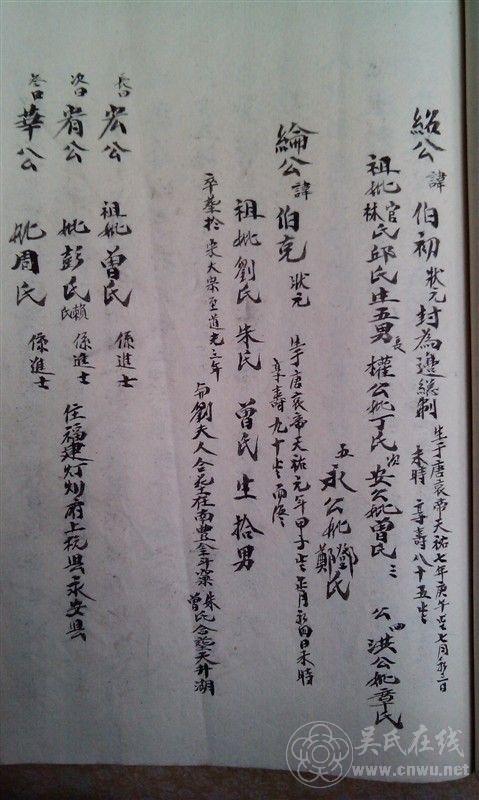 紹公 諱 伯初 狀元 封為邊總制 生于唐哀帝天祐七年庚午歲七月初三日
未時 享壽八十五歲
祖妣官氏林氏邱氏生五男長權公妣丁氏 次安公妣曾氏 三 公 四洪公妣章氏
五永公妣鄧氏鄭氏
綸公 諱 伯克 狀元 生于唐哀帝天祐元年甲子歲正月初四日未時
享壽九十歲而終
祖妣劉氏 朱氏 曾氏 生拾男
卒葬於宋大 至道元三年 與劉夫人合葬在南豐 朱氏曾氏合葬天井湖
長曰宏公 祖妣曾氏 係進士
次曰宥公 妣彭氏賴氏 係進士 住福建汀州府上杭縣永安縣
叁曰華公 妣周氏 係進士
吴氏在线
www.cnwu.net